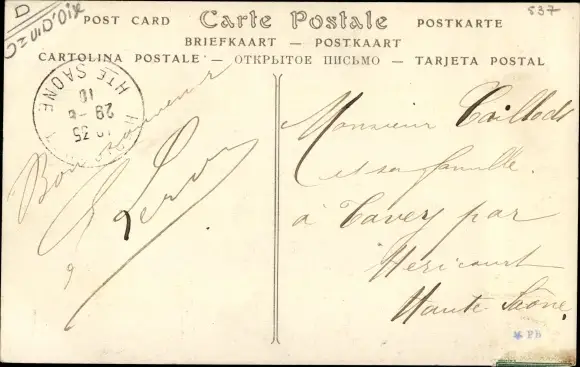 D
537
POST CARD Carte Postale POSTKARTE
BRIEFKAART — POSTKAART
CARTOLINA POSTALE — ОТКРЫТОЕ ПИСЬМО — TARJETA POSTAL
HTE SAONE
10
29 - 8
35
Bon souvenir
Monsieur
et sa famille
à Tavey par
Héricourt
Haute Saône
PB